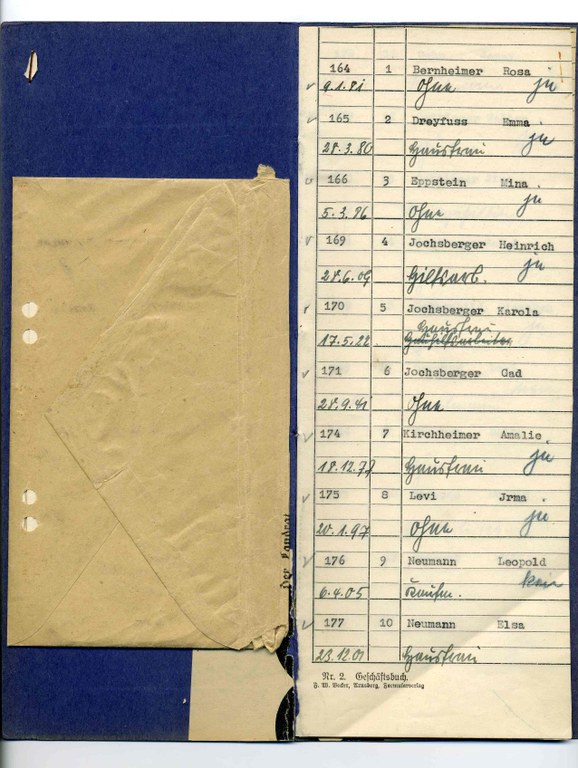 164 1 Bernheimer Rosa
9.1.81 Ohne ja
165 2 Dreyfuss Emma
28.3.80 Hausfrau ja
166 3 Eppstein Mina
5.3.76 Ohne ja
169 4 Jochsberger Heinrich
28.6.09 Hilfsarb. ja
170 5 Jochsberger Karola
Hausfrau
17.5.22
171 6 Jochsberger Gad
28.9.41 Ohne
174 7 Kirchheimer Amalie
18.12.77 Hausfrau ja
175 8 Levi Jrma
20.1.97 Ohne ja
176 9 Neumann Leopold
6.4.05 Kaufm.
177 10 Neumann Elsa
23.12.01 Hausfrau
Nr. 2. Geschäftsbuch.
F. W. Becker, Arnsberg, Formularverlag
Der Landrat